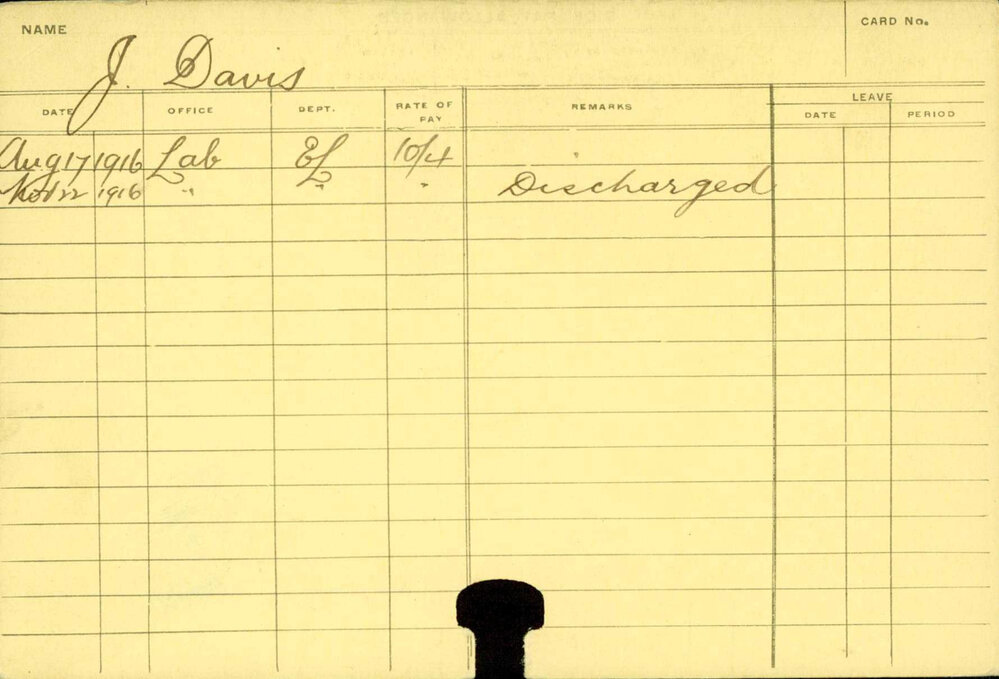 NAME J. Davis CARD No.
DATE OFFICE DEPT. RATE OF PAY REMARKS LEAVE
DATE PERIOD
Aug 17 1916 Lab EL 10/4
Nov 22 1916 " " " Discharged